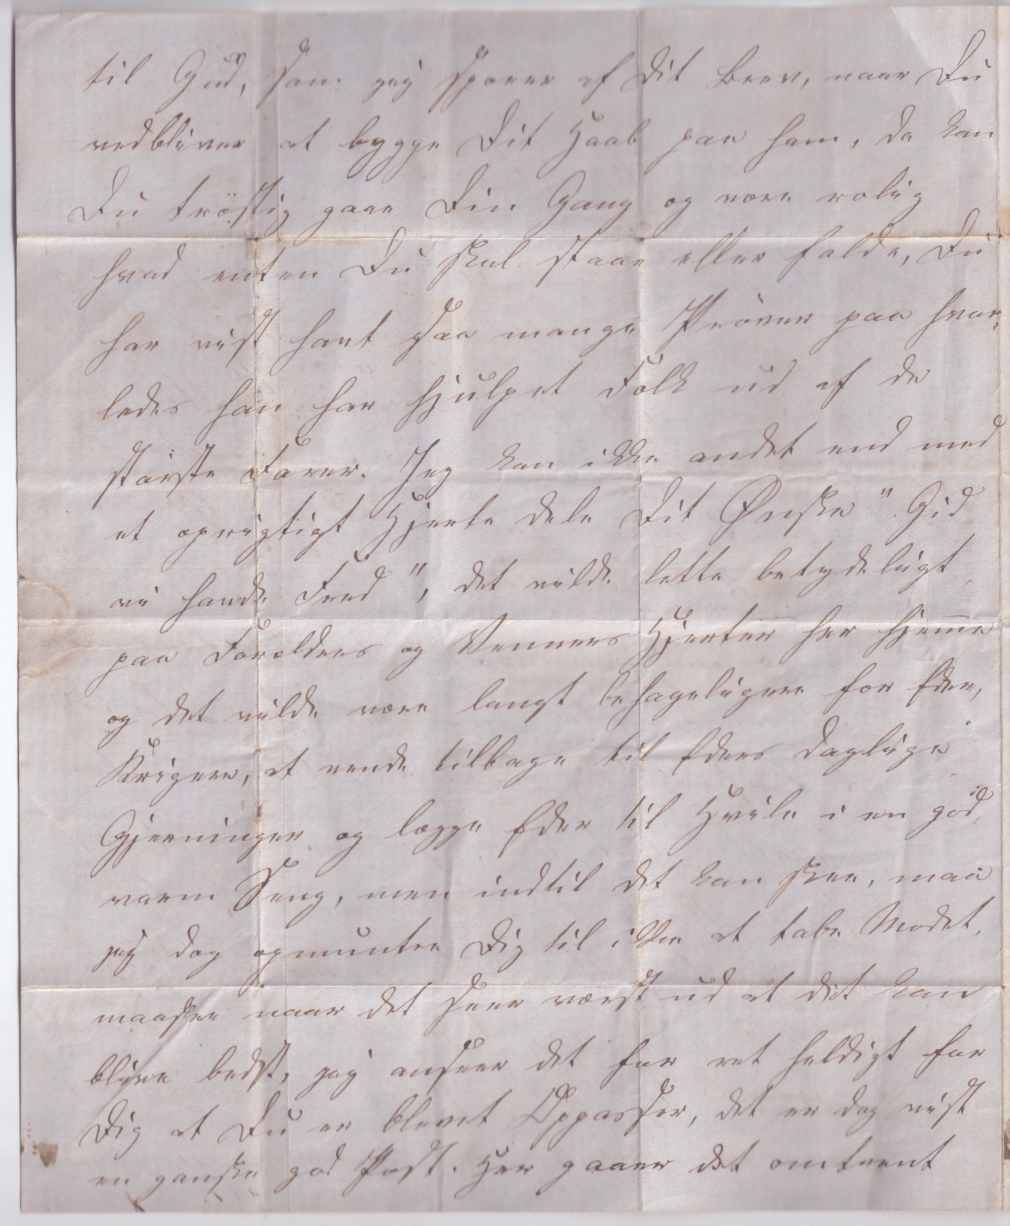 til Gud, som jeg sporer af Dit Brev, naar Du
vedbliver at bygge Dit Haab paa ham, da kan
Du trøstig gaae Din Gang og være rolig
hvad enten Du skal staae eller falde, Du
har vist havt saa mange Prøver paa hvor,
ledes han har hjulpet Folk ud af de
største Farer. Jeg kan ikke andet end med
et oprigtigt Hjerte dele Dit Ønske "Gid
vi havde Fred", det vilde lette betydeligt
paa Forældres og Venners Hjerter her hjemme
og det vilde være langt behageligere for Eder,
Krigere, at vende tilbage til Eders daglige
Gjerninger og lægge Eder til Hvile i en god,
varm Seng, men indtil det kan skee, maa
jeg dog opmuntre Dig til ikke at tabe Modet,
maaskee naar det seer værst ud at det kan
blive bedst, jeg anseer det for ret heldigt for
Dig at Du er blevet Oppasser, det er dog vist
en ganske god Post. Her gaaer det omtrent